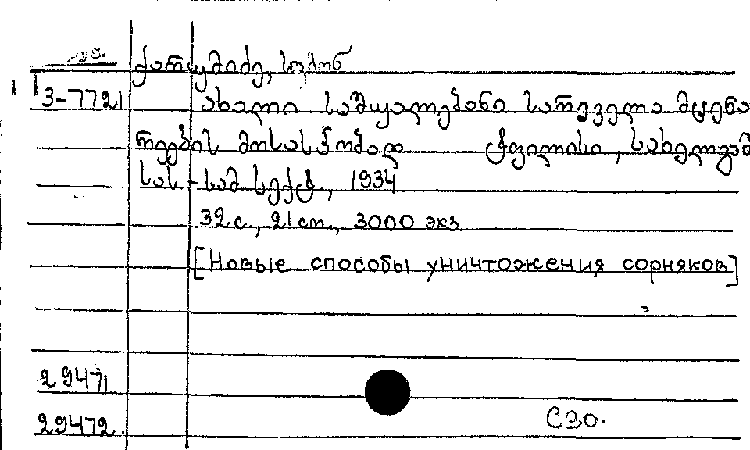 3-7721
ახალი საშუალებანი სარეველა მცენა
რეების მოსასპობად თბილისი, სახელგამ
სას-სამ სექტ, 1934
32 с., 21 cm., 3000 экз
[Новые способы уничтожения сорняков]
29471
29472.